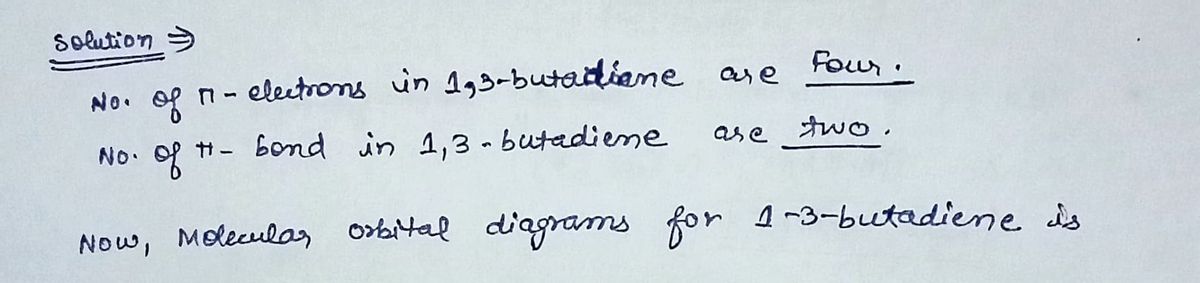 Solution ⇒
No. of π - electrons in 1,3-butadiene are Four.
No. of π - bond in 1,3-butadiene are two.
Now, Molecular orbital diagrams for 1-3-butadiene is